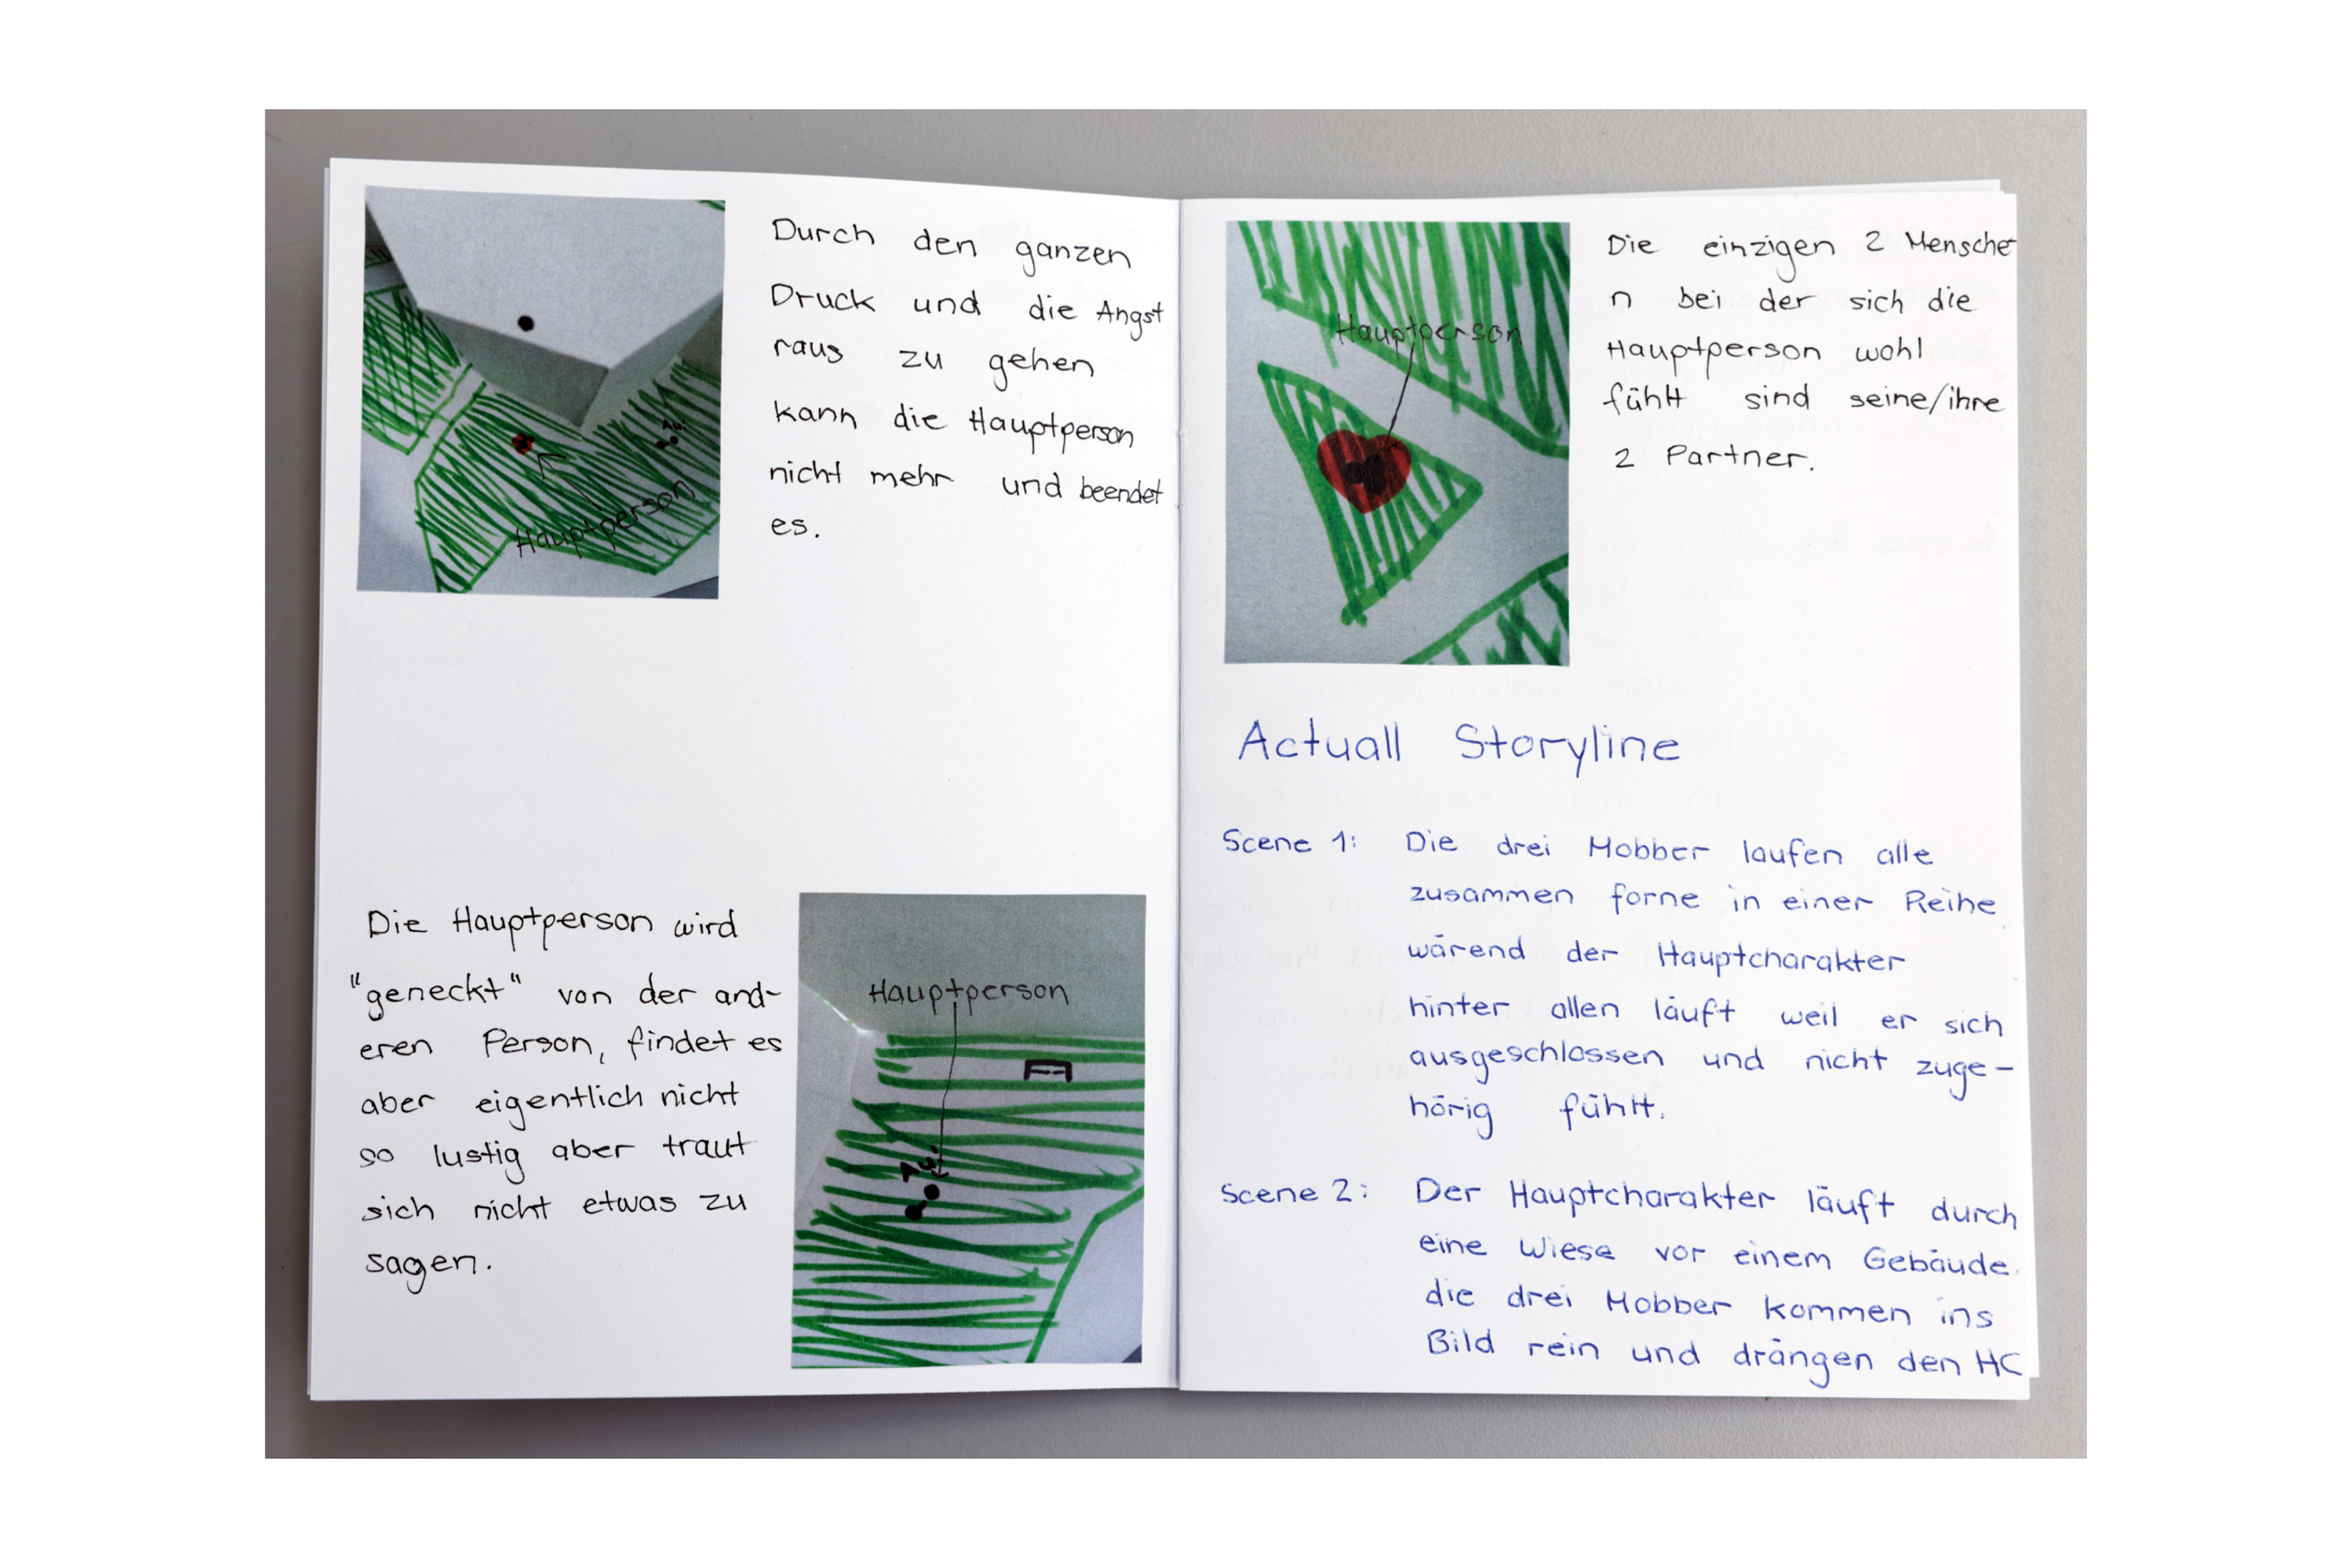 Durch den ganzen
Druck und die Angst
raus zu gehen
kann die Hauptperson
nicht mehr und beendet
es.
Au!
Hauptperson
Die Hauptperson wird
"geneckt" von der and-
eren Person, findet es
aber eigentlich nicht
so lustig aber traut
sich nicht etwas zu
sagen.
Hauptperson
Au!
Hauptperson
Die einzigen 2 Mensche
n bei der sich die
Hauptperson wohl
fühlt sind seine/ihre
2 Partner.
Actuall Storyline
Scene 1: Die drei Mobber laufen alle
zusammen forne in einer Reihe
wärend der Hauptcharakter
hinter allen läuft weil er sich
ausgeschlossen und nicht zuge-
hörig fühlt.
Scene 2: Der Hauptcharakter läuft durch
eine Wiese vor einem Gebäude.
die drei Mobber kommen ins
Bild rein und drängen den HC